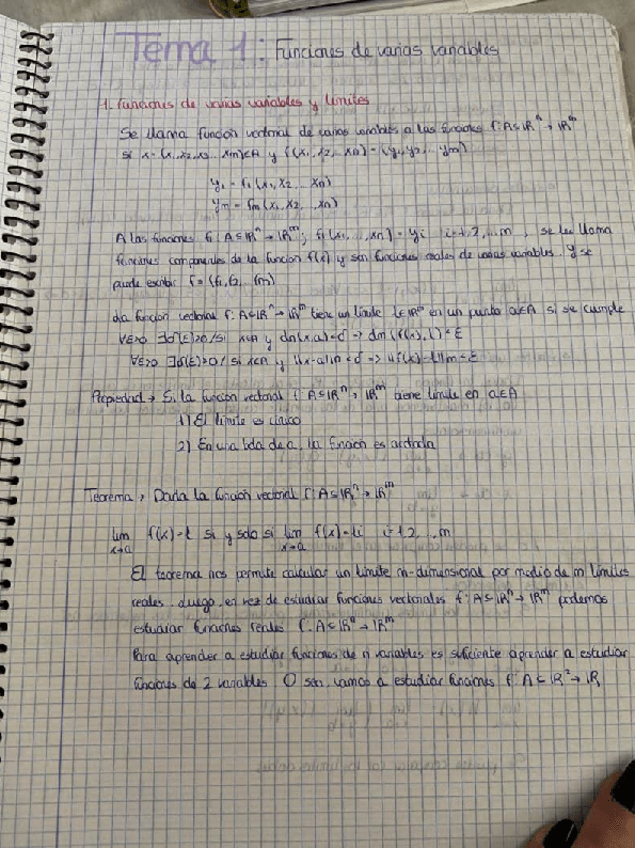 Tema 1: Funciones de varias variables
1. Funciones de varias variables y límites
Se llama función vectorial de varias variables a las funciones f: A⊆ℝⁿ → ℝᵐ
si x = (x₁, x₂, x₃ ... xₙ) ∈ A y f(x₁, x₂, ... xₙ) = (y₁, y₂, ... yₘ)
y₁ = f₁(x₁, x₂ ... xₙ)
yₘ = fₘ(x₁, x₂, ..., xₙ)
A las funciones fᵢ: A⊆ℝⁿ → ℝᵐ; fᵢ(x₁, ..., xₙ) = yᵢ i=1,2,...m, se les llama
funciones componentes de la función f(x) y son funciones reales de varias variables. Y se
puede escribir f = (f₁, f₂, ... fₘ)
La función vectorial f: A⊆ℝⁿ → ℝᵐ tiene un límite l∈ℝᵐ en un punto a∈A si se cumple
∀ε>0 ∃δ(ε)>0 / si x∈A y dn(x,a)<δ => dm(f(x), l) < ε
∀ε>0 ∃δ(ε)>0 / si x∈A y ||x-a||n < δ => ||f(x)-l||m < ε
Propiedad → Si la función vectorial f: A⊆ℝⁿ → ℝᵐ tiene límite en a∈A
1) El límite es único
2) En una bda de a, la función es acotada
Teorema → Dada la función vectorial f: A⊆ℝⁿ → ℝᵐ
lim f(x)=l si y solo si lim f(x)=li i=1,2,...,m
x→a x→a
El teorema nos permite calcular un límite m-dimensional por medio de m límites
reales. Luego, en vez de estudiar funciones vectoriales f: A⊆ℝⁿ → ℝᵐ podemos
estudiar funciones reales f: A⊂ℝⁿ → ℝᵐ
Para aprender a estudiar funciones de n variables es suficiente aprender a estudiar
funciones de 2 variables. O sea, vamos a estudiar funciones f: A⊂ℝ² → ℝ